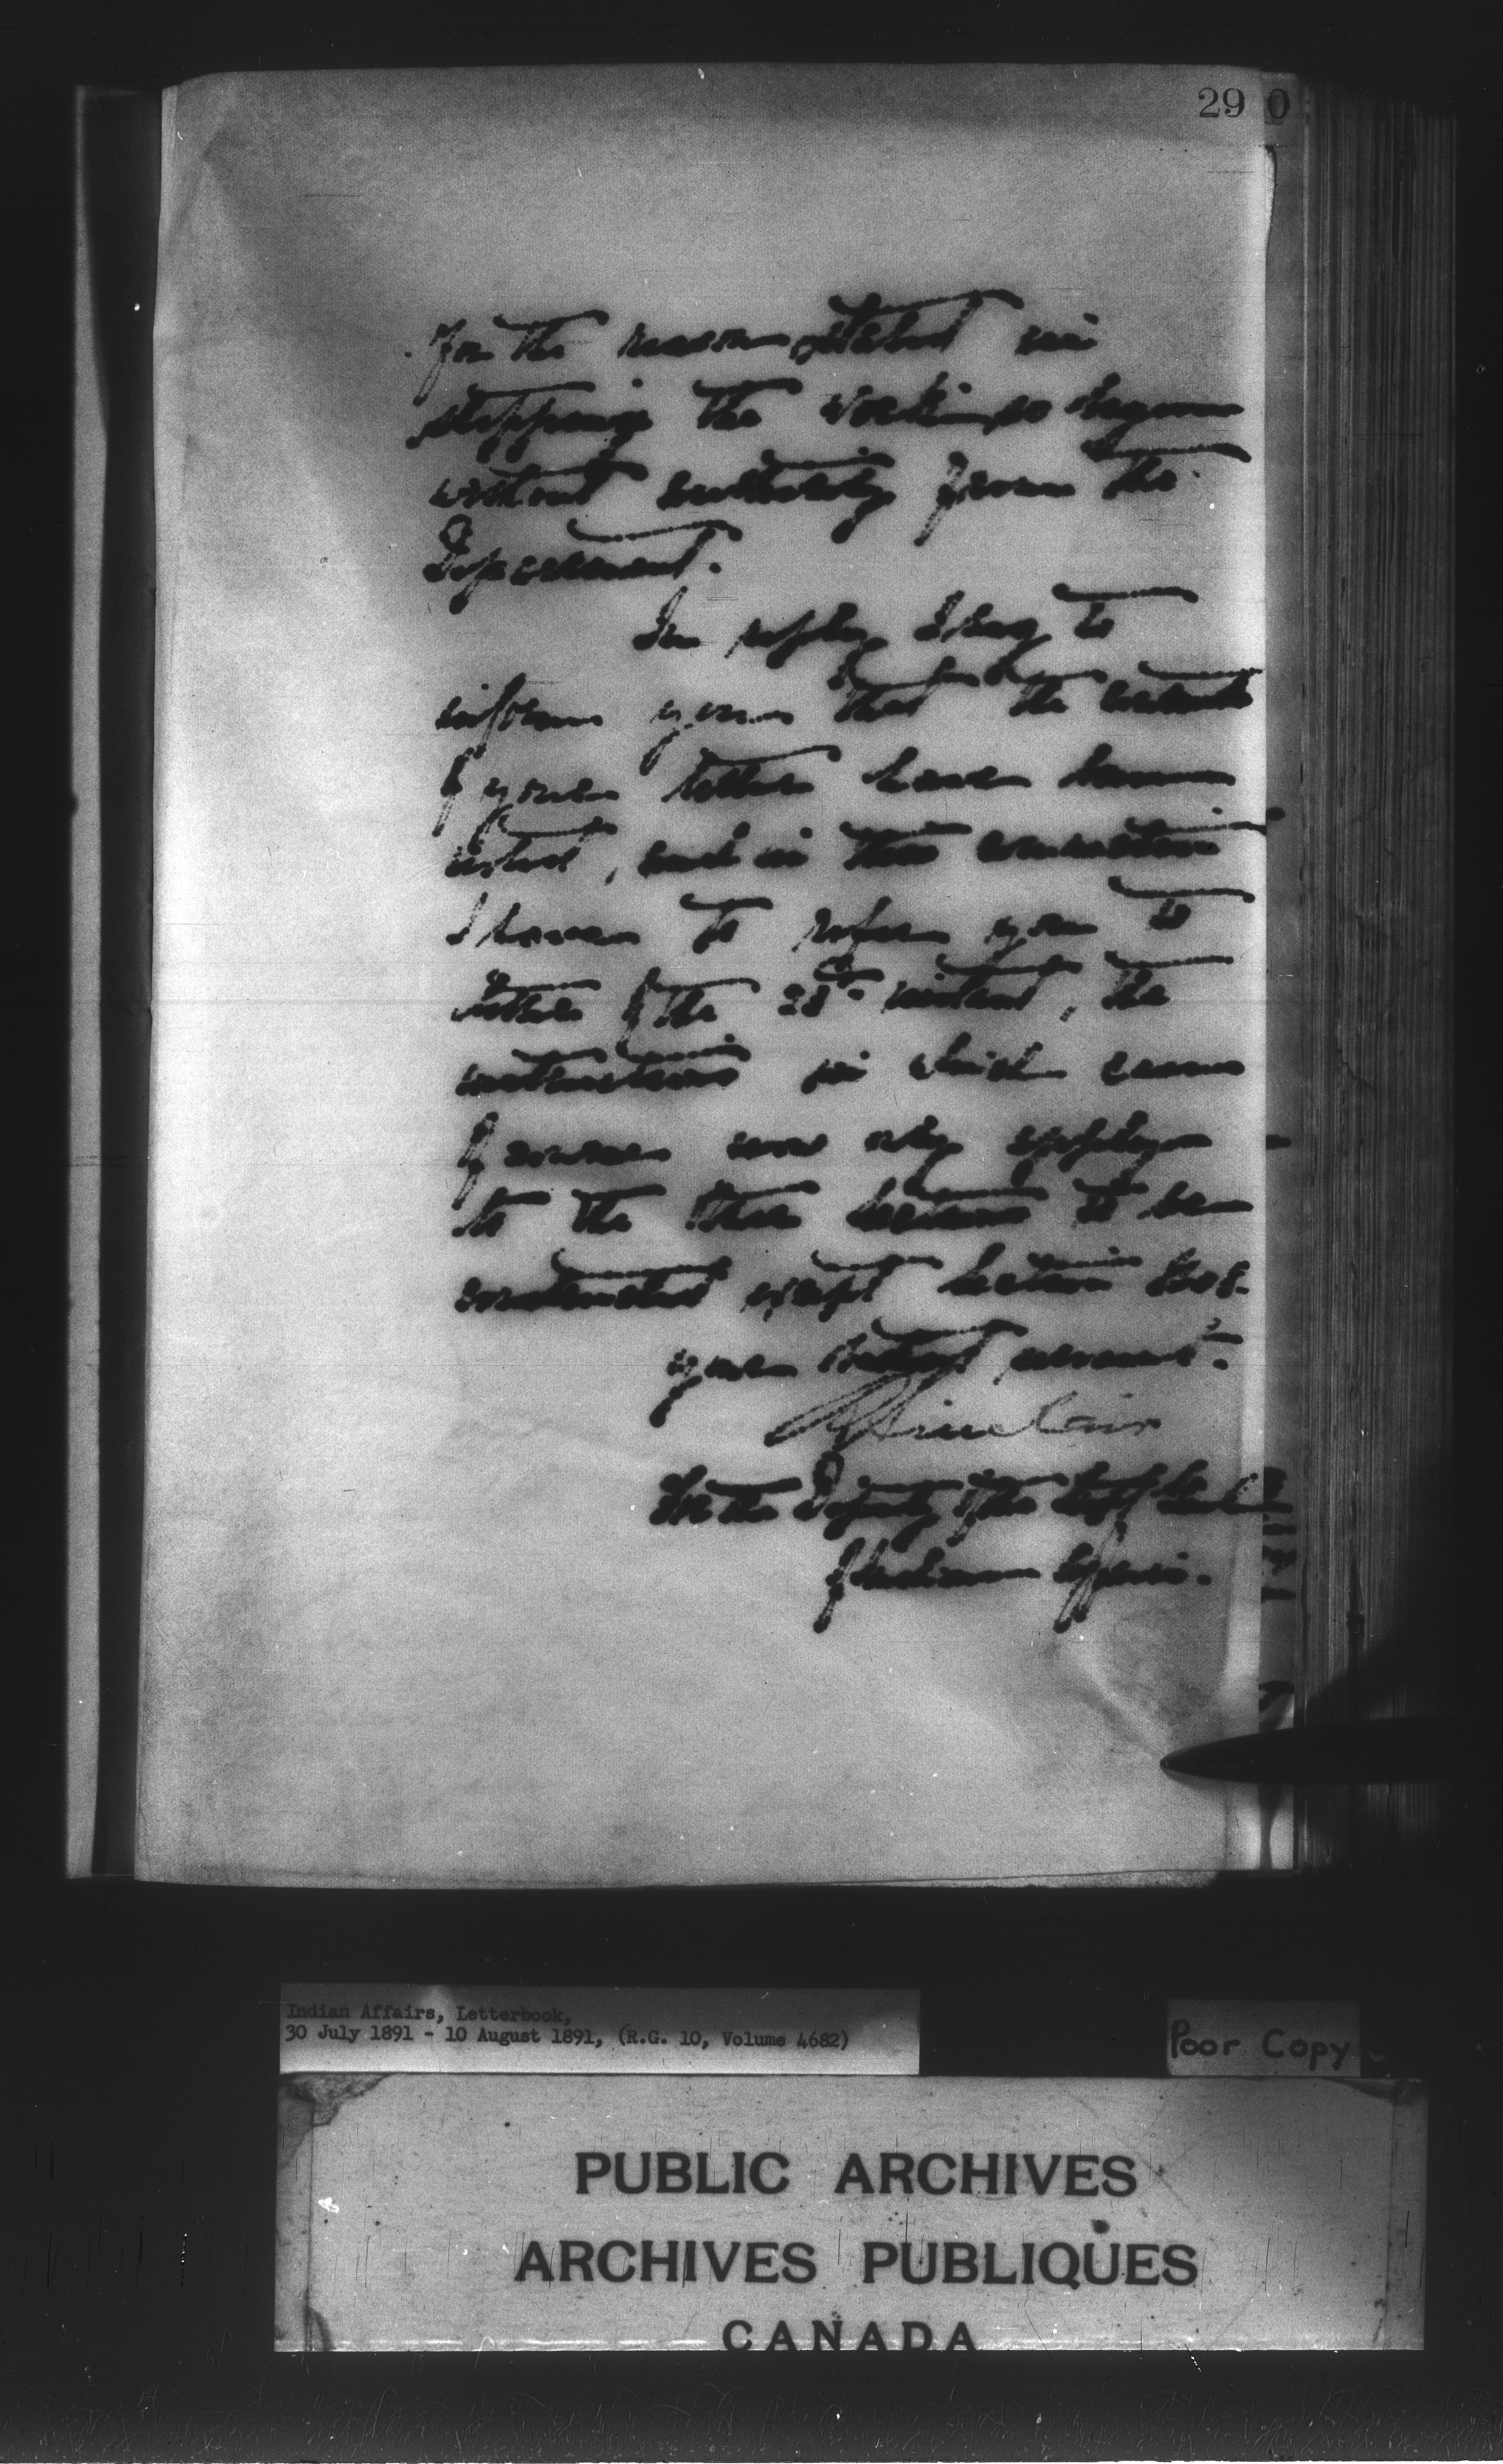 290
for the reason stated in
stopping the work so begun
without authority from the
Department.
In reply I beg to
inform you that the contents
of your letter have been
noted, and in this connection
I have to refer you to
letter of the 28th instant, the
instructions in which
of course now only apply
to the three sections to be
constructed except section
Your obedient servant.
Sinclair
For the Deputy of the Supt. Genl.
of Indian Affairs.
Indian Affairs, Letterbook,
30 July 1891 - 10 August 1891, (R.G. 10, Volume 4682)
Poor Copy
PUBLIC ARCHIVES
ARCHIVES PUBLIQUES
CANADA